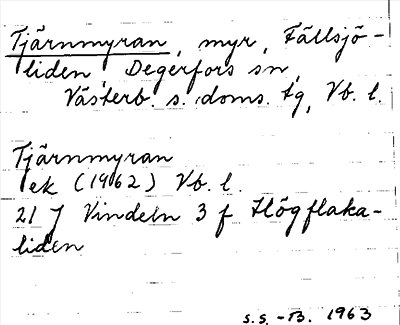 Tjärnmyran, myr, Fällsjö-
liden, Degerfors sn,
Västerb. s. doms. tg, Vb. l.
Tjärnmyran
ek (1962) Vb. l.
21 J Vindeln 3 f Högflaka-
liden
s.s. -B. 1963